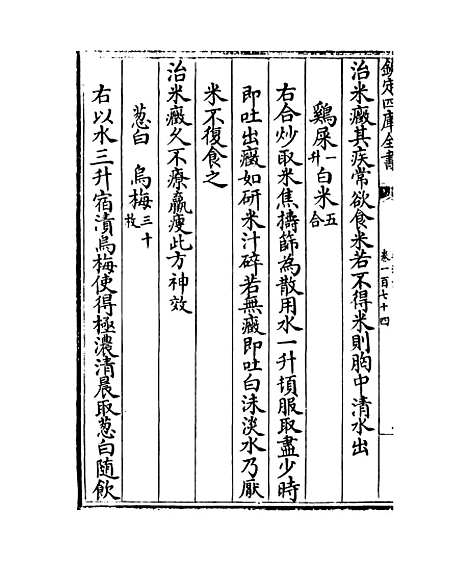 欽定四庫全書
卷一百七十四
治米癥其疾常欲食米若不得米則胸中清水出
鷄屎一升 白米五合
右合炒取米焦擣篩為散用水一升頓服取盡少時
即吐出癥如研米汁碎若無癥即吐白沫淡水乃厭
米不復食之
治米癥久不療羸瘦此方神效
葱白 烏梅三十枚
右以水三升宿漬烏梅使得極濃清晨取葱白隨飲